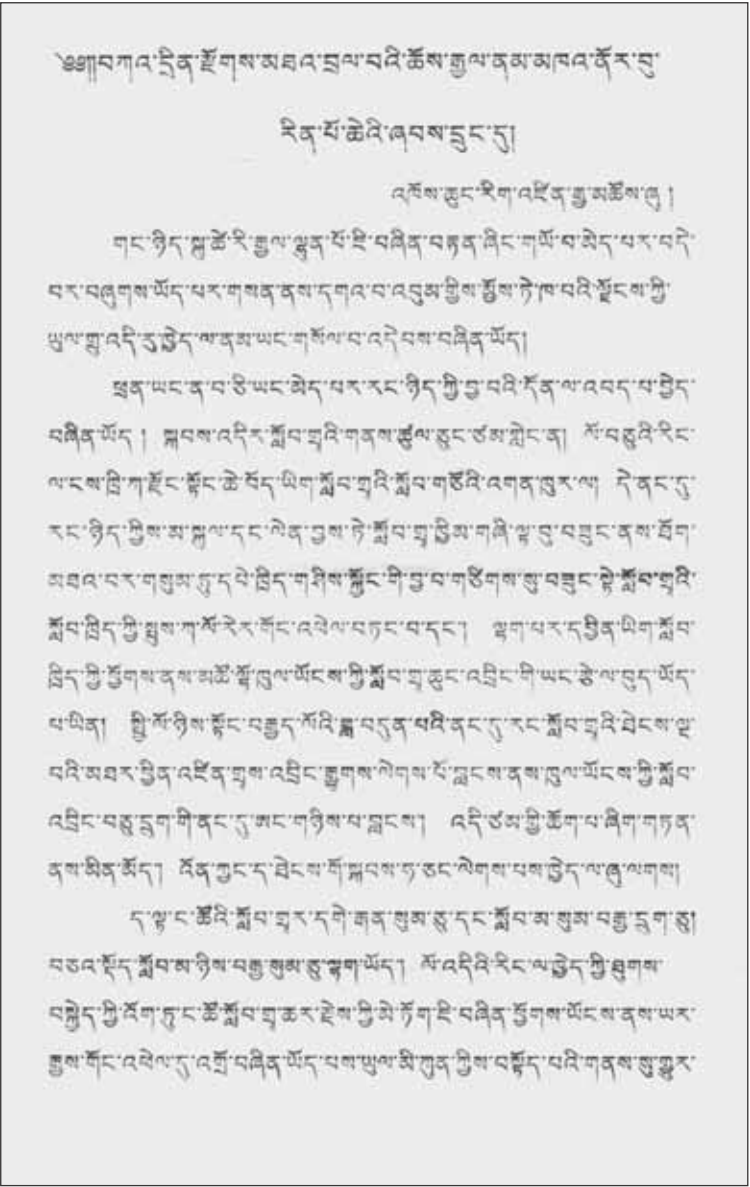 ༄༅།།བཀའ་དྲིན་རྫོགས་མཐའ་བྲལ་བའི་ཆོས་རྒྱལ་ནམ་མཁའ་ནོར་བུ་
རིན་པོ་ཆེའི་ཞབས་དྲུང་དུ།
འཁོས་ཆུང་རིག་འཛིན་རྒྱ་མཚོས་ཞུ །
གང་ཉིད་སྐུ་ཚེ་རི་རྒྱལ་ལྷུན་པོ་ཇི་བཞིན་བརྟན་ཞིང་གཡོ་བ་མེད་པར་བདེ་
བར་བཞུགས་ཡོད་པར་གསན་ནས་དགའ་བ་འབུམ་གྱིས་མྱོས་ཏེ་ཁ་བའི་ལྗོངས་ཀྱི་
ཡུལ་གྲུ་འདི་རུ་ཁྱེད་ལ་ནམ་ཡང་གསོལ་བ་འདེབས་བཞིན་ཡོད།
ཕྲན་ཡང་ན་བ་ཅི་ཡང་མེད་པར་རང་ཉིད་ཀྱི་བྱ་བའི་དོན་ལ་འབད་པ་བྱེད་
བཞིན་ཡོད ། སྐབས་འདིར་སློབ་གྲྭའི་གནས་ཚུལ་ཅུང་ཙམ་གླེང་ན། ལོ་བཅུའི་རིང་
ལ་ངས་ཁྲི་ཀ་རྫོང་སྟོང་ཆེ་བོད་ཡིག་སློབ་གྲྭའི་སློབ་གཙོའི་འགན་ཁུར་ལ། དེ་ནང་དུ་
རང་ཉིད་ཀྱིས་མ་སྐུལ་དང་ལེན་བྱས་ཏེ་སློབ་གྲྭ་ཁྱིམ་གཞི་ལྟ་བུ་བཟུང་ནས་ཐོག་
མཐའ་བར་གསུམ་ཏུ་དཔེ་ཁྲིད་གཤིས་སྐྱོང་གི་བྱ་བ་གཙིགས་སུ་བཟུང་སྟེ་སློབ་གྲྭའི་
སློབ་ཁྲིད་ཀྱི་སྤུས་ཀ་ལོ་རེར་གོང་འཕེལ་བཏང་བ་དང་། ལྷག་པར་དབྱིན་ཡིག་སློབ་
ཁྲིད་ཀྱི་ཕྱོགས་ནས་མཚོ་ལྷོ་ཁུལ་ཡོངས་ཀྱི་སློབ་གྲྭ་ཆུང་འབྲིང་གི་ཡང་རྩེ་ལ་བུད་ཡོད་
པ་ཡིན། སྤྱི་ལོ་ཉིས་སྟོང་བརྒྱད་ལོའི་ཟླ་བདུན་པའི་ནང་དུ་རང་སློབ་གྲྭའི་ཐེངས་ལྔ་
བའི་མཐར་ཕྱིན་འཛིན་གྲྭས་འབྲིང་རྒྱུགས་ལེགས་པོ་བླངས་ནས་ཁུལ་ཡོངས་ཀྱི་སློབ་
འབྲིང་བཅུ་དྲུག་གི་ནང་དུ་ཨང་གཉིས་པ་བླངས། འདི་ཙམ་གྱི་ཆོག་པ་ཞིག་གཏན་
ནས་མིན་མོད། འོན་ཀྱང་ད་ཐེངས་གོ་སྐབས་ཧ་ཅང་ལེགས་པས་ཁྱེད་ལ་ཞུ་ལགས།
ད་ལྟ་ང་ཚོའི་སློབ་གྲྭར་དགེ་རྒན་སུམ་ཅུ་དང་སློབ་མ་སུམ་བརྒྱ་དྲུག་ཅུ།
བཅའ་སྡོད་སློབ་མ་ཉིས་བརྒྱ་སུམ་ཅུ་ལྷག་ཡོད། ལོ་འདིའི་རིང་ལ་ཁྱེད་ཀྱི་ཐུགས་
བསྐྱེད་ཀྱི་འོག་ཏུ་ང་ཚོ་སློབ་གྲྭ་ཆར་རྗེས་ཀྱི་མེ་ཏོག་ཇི་བཞིན་ཕྱོགས་ཡོངས་ནས་ཡར་
རྒྱས་གོང་འཕེལ་དུ་འགྲོ་བཞིན་ཡོད་པས་ཡུལ་མི་ཀུན་གྱིས་བསྟོད་པའི་གནས་སུ་གྱུར་